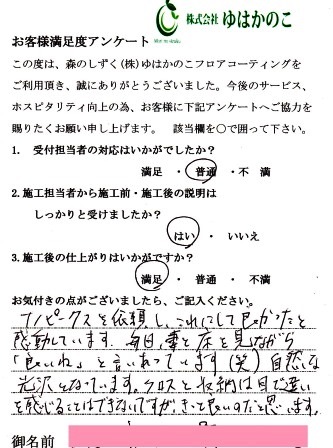 株式会社 ゆはかのこ
お客様満足度アンケート
この度は、森のしずく(株)ゆはかのこフロアコーティングを
ご利用頂き、誠にありがとうございました。今後のサービス、
ホスピタリティ向上の為、お客様に下記アンケートへご協力を
賜りたくお願い申し上げます。 該当欄を○で囲って下さい。
1. 受付担当者の対応はいかがでしたか?
満足 ・ 普通 ・ 不満
2. 施工担当者から施工前・施工後の説明は
しっかりと受けましたか?
はい ・ いいえ
3. 施工後の仕上がりはいかがですか?
満足 ・ 普通 ・ 不満
お気付きの点がございましたら、ご記入ください。
ナノピークスを依頼し、これにして良かったと
感動しています。毎日、妻と床を見ながら
「良いね」と言いあっています(笑) 自然な
光沢となっています。クロスと収納は目で違い
を感じることはできないですが、きっと良いのだと思います。
御名前